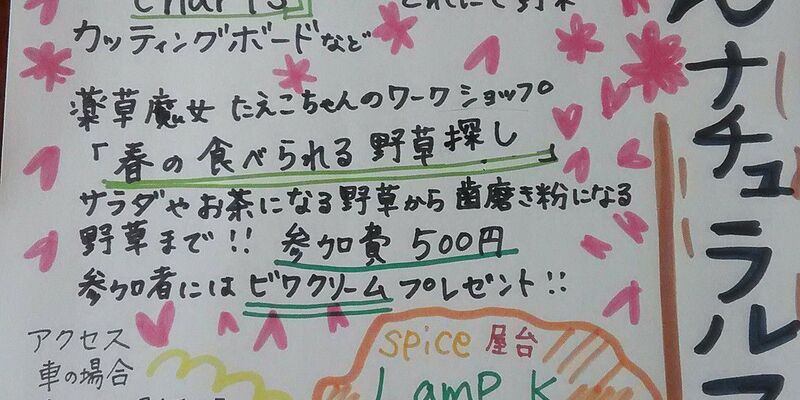 charis」
とれたて野菜
カッティングボードなど
薬草魔女 たえこちゃんのワークショップ
「春の食べられる野草探し」
サラダやお茶になる野草から歯磨き粉になる
野草まで!! 参加費 500円
参加者にはビワクリームプレゼント!!
アクセス
車の場合
spice 屋台
Lamp K
ナチュラルマ